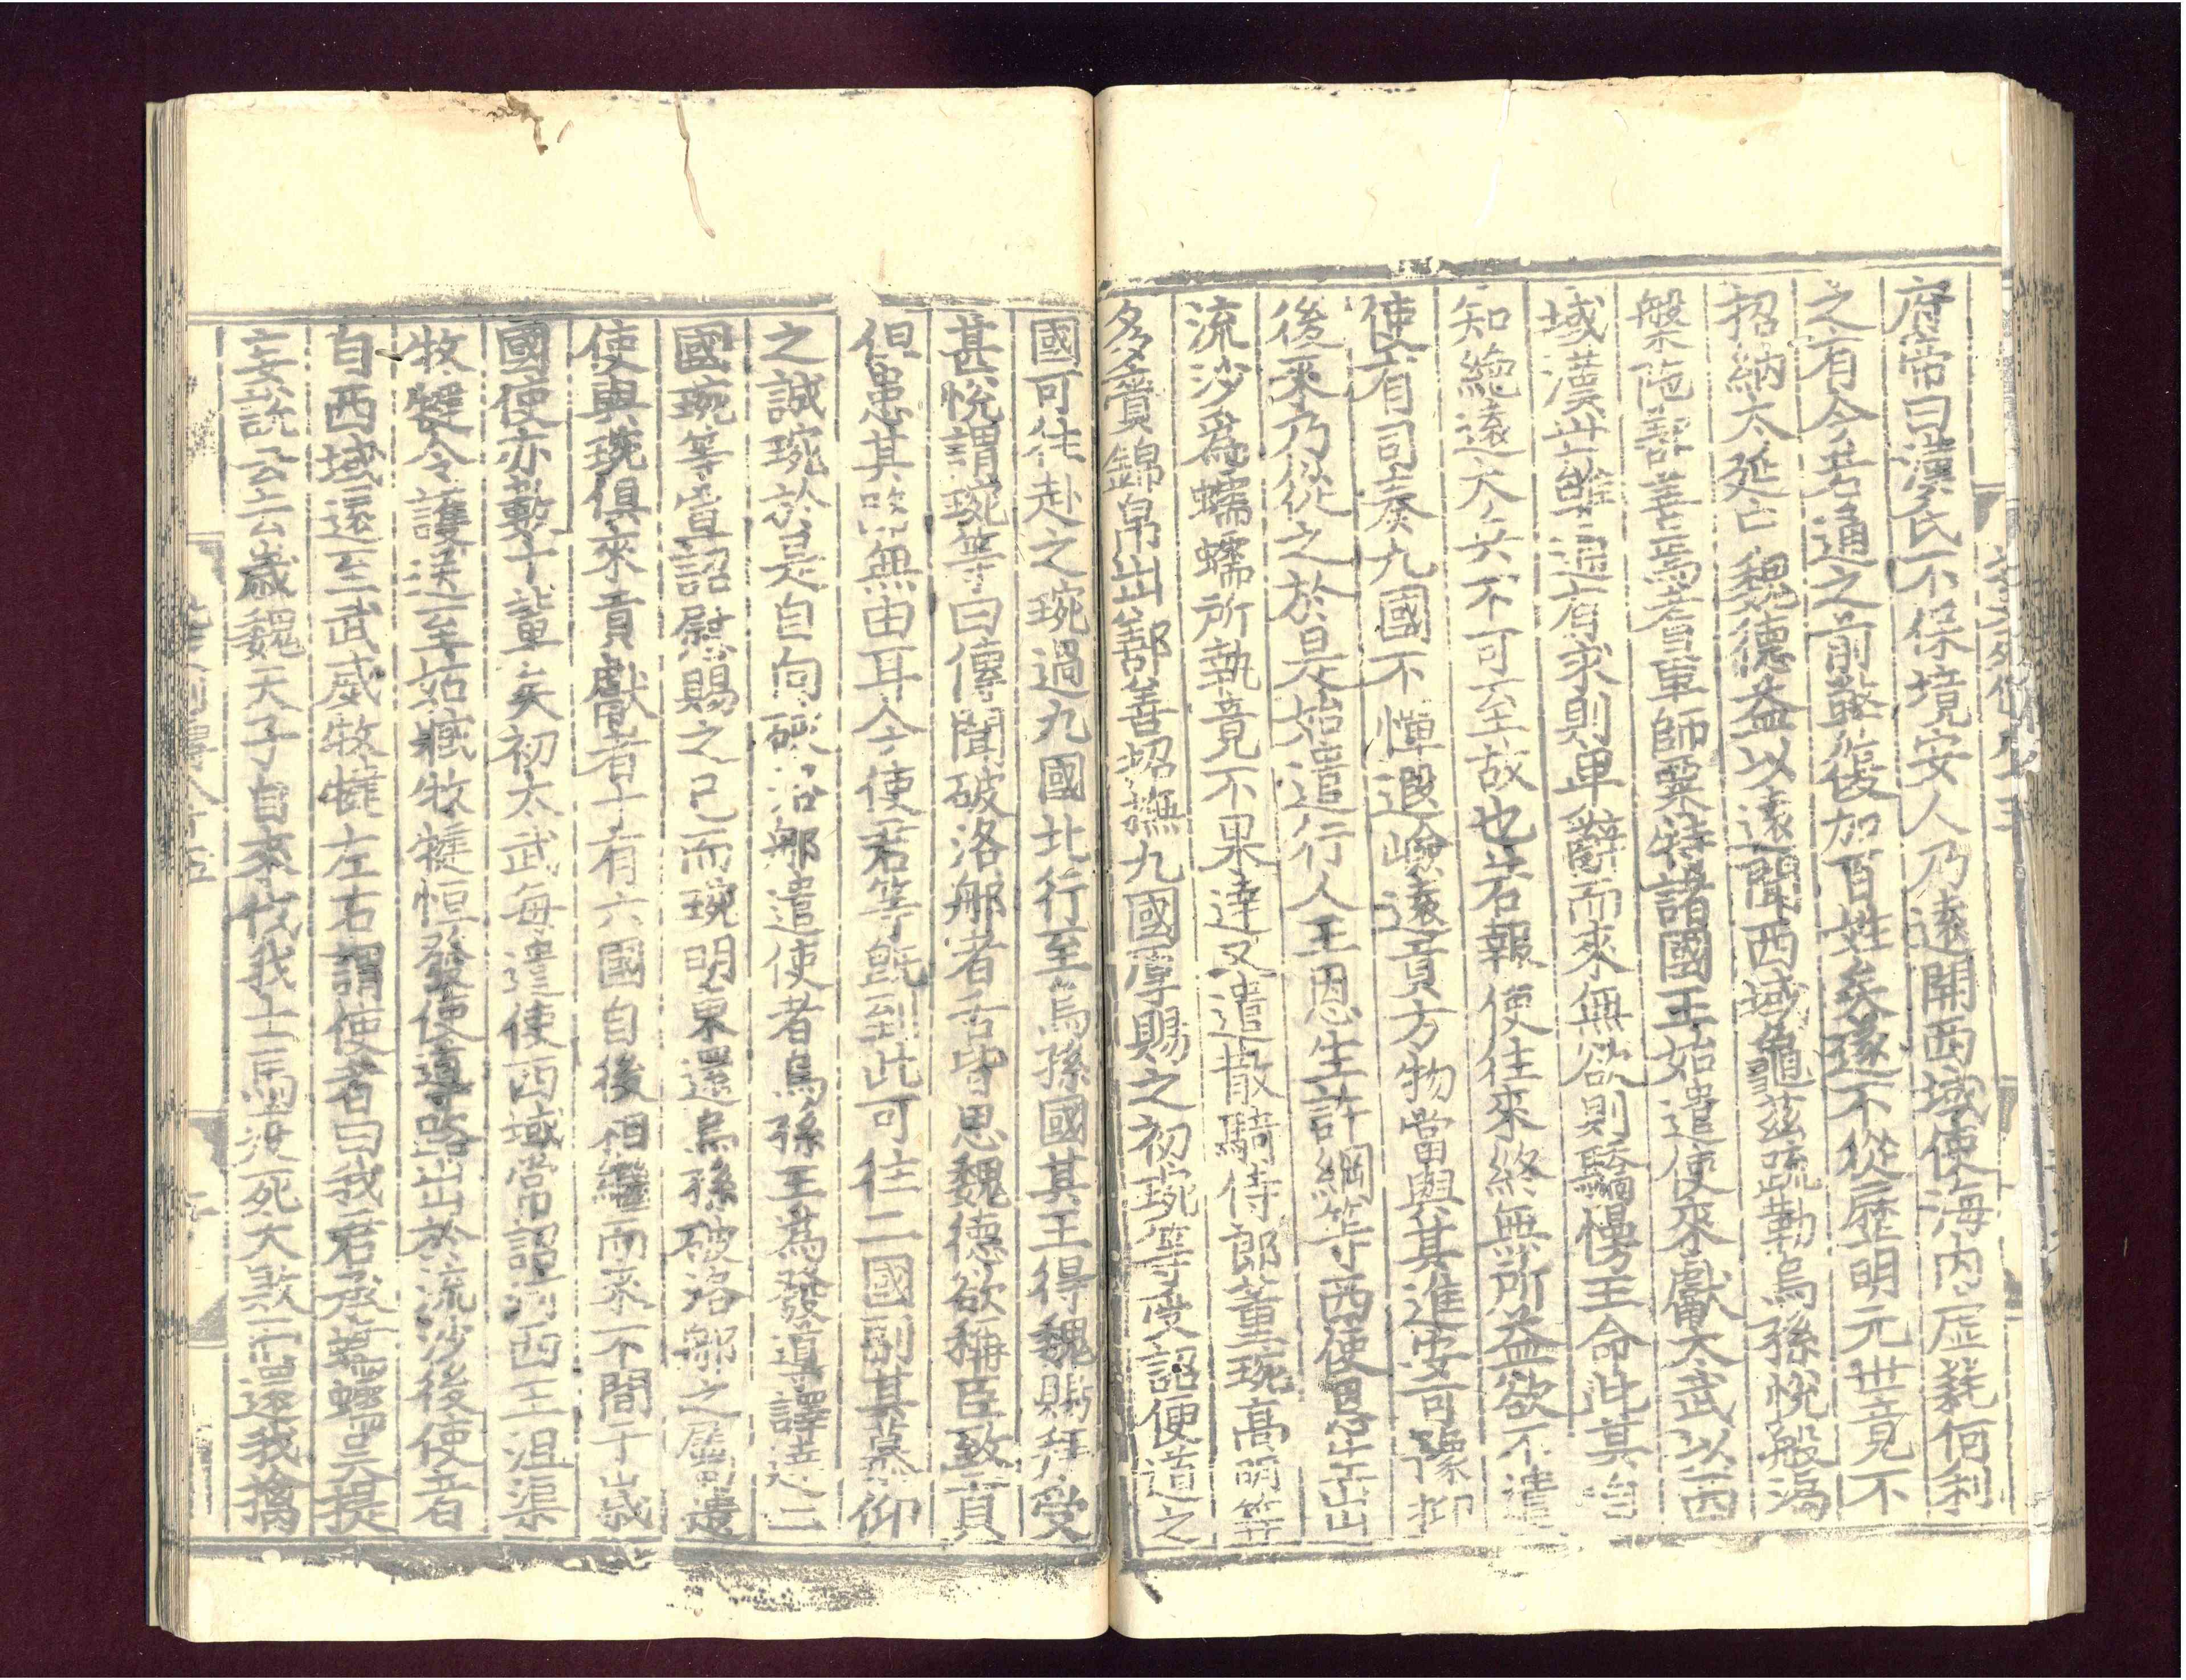 府帝曰漢氏不保境安人乃遠開西域使海内虛耗何利
之有今若通之前弊復加百姓矣遂不從歷明元世竟不
招納太延亡魏德益以遠聞西域龜茲疏勒烏孫悅般渴
槃陁鄯善焉耆車師粟特諸國王始遣使來獻太武以西
域漢世雖通有求則卑辭而來無欲則驕慢王命此其自
知絶遠大兵不可至故也若報使往來終無所益欲不遣
使有司奏九國不憚遐嶮遠貢方物當與其進安可豫抑
後來乃從之於是始遣行人王恩生許綱等西使恩生出
流沙爲蠕蠕所執竟不果達又遣散騎侍郎董琬高明等
多賫錦帛出鄯善招撫九國厚賜之初琬等受詔便道之
國可往赴之琬過九國北行至烏孫國其王得魏賜拜受
甚悅謂琬等曰傳聞破洛那者舌皆思魏德欲稱臣致貢
但患其路無由耳今使君等旣到此可往二國副其慕仰
之誠琬於是自向破洛那遣使者烏孫王為發導譯達二
國琬等宣詔慰賜之已而琬明東還烏孫破洛那之屬遣
使與琬俱來貢獻者十有六國自後相繼而來不間于歲
國使亦數十輩矣初太武每遣使西域常詔河西王沮渠
牧犍令護送至姑臧牧犍恒發使導路出於流沙後使者
自西域還至武威牧犍左右謂使者曰我君承蠕蠕吳提
妄說云去歲魏天子自來伐我士馬疫死大敗而還我擒